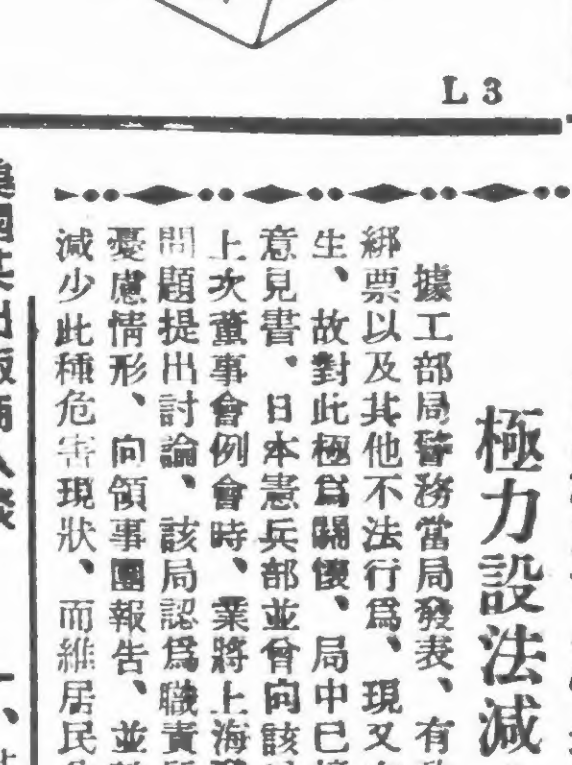 L 3
極力設法減
據工部局警務當局發表、有
綁票以及其他不法行爲、現又
生、故對此極爲關懷、局中已
意見書、日本憲兵部並曾向該
上次董事會例會時、業將上海
問題提出討論、該局認爲職責
憂慮情形、向領事團報告、並
減少此種危害現狀、而維居民